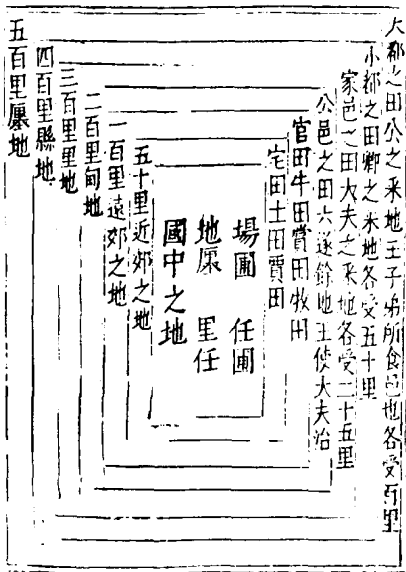 大都之田公之采地王子弟所食邑地各受百里
小都之田卿之采地各受五十里
家邑之田大夫之采地各受二十五里
公邑之田六遂餘地王使大夫治
官田牛田賞田牧田
宅田士田賈田
場圃 任圃
地㕓 里任
國中之地
五十里近郊之地
一百里遠郊之地
二百里甸地
三百里里地
四百里縣地
五百里㕓地